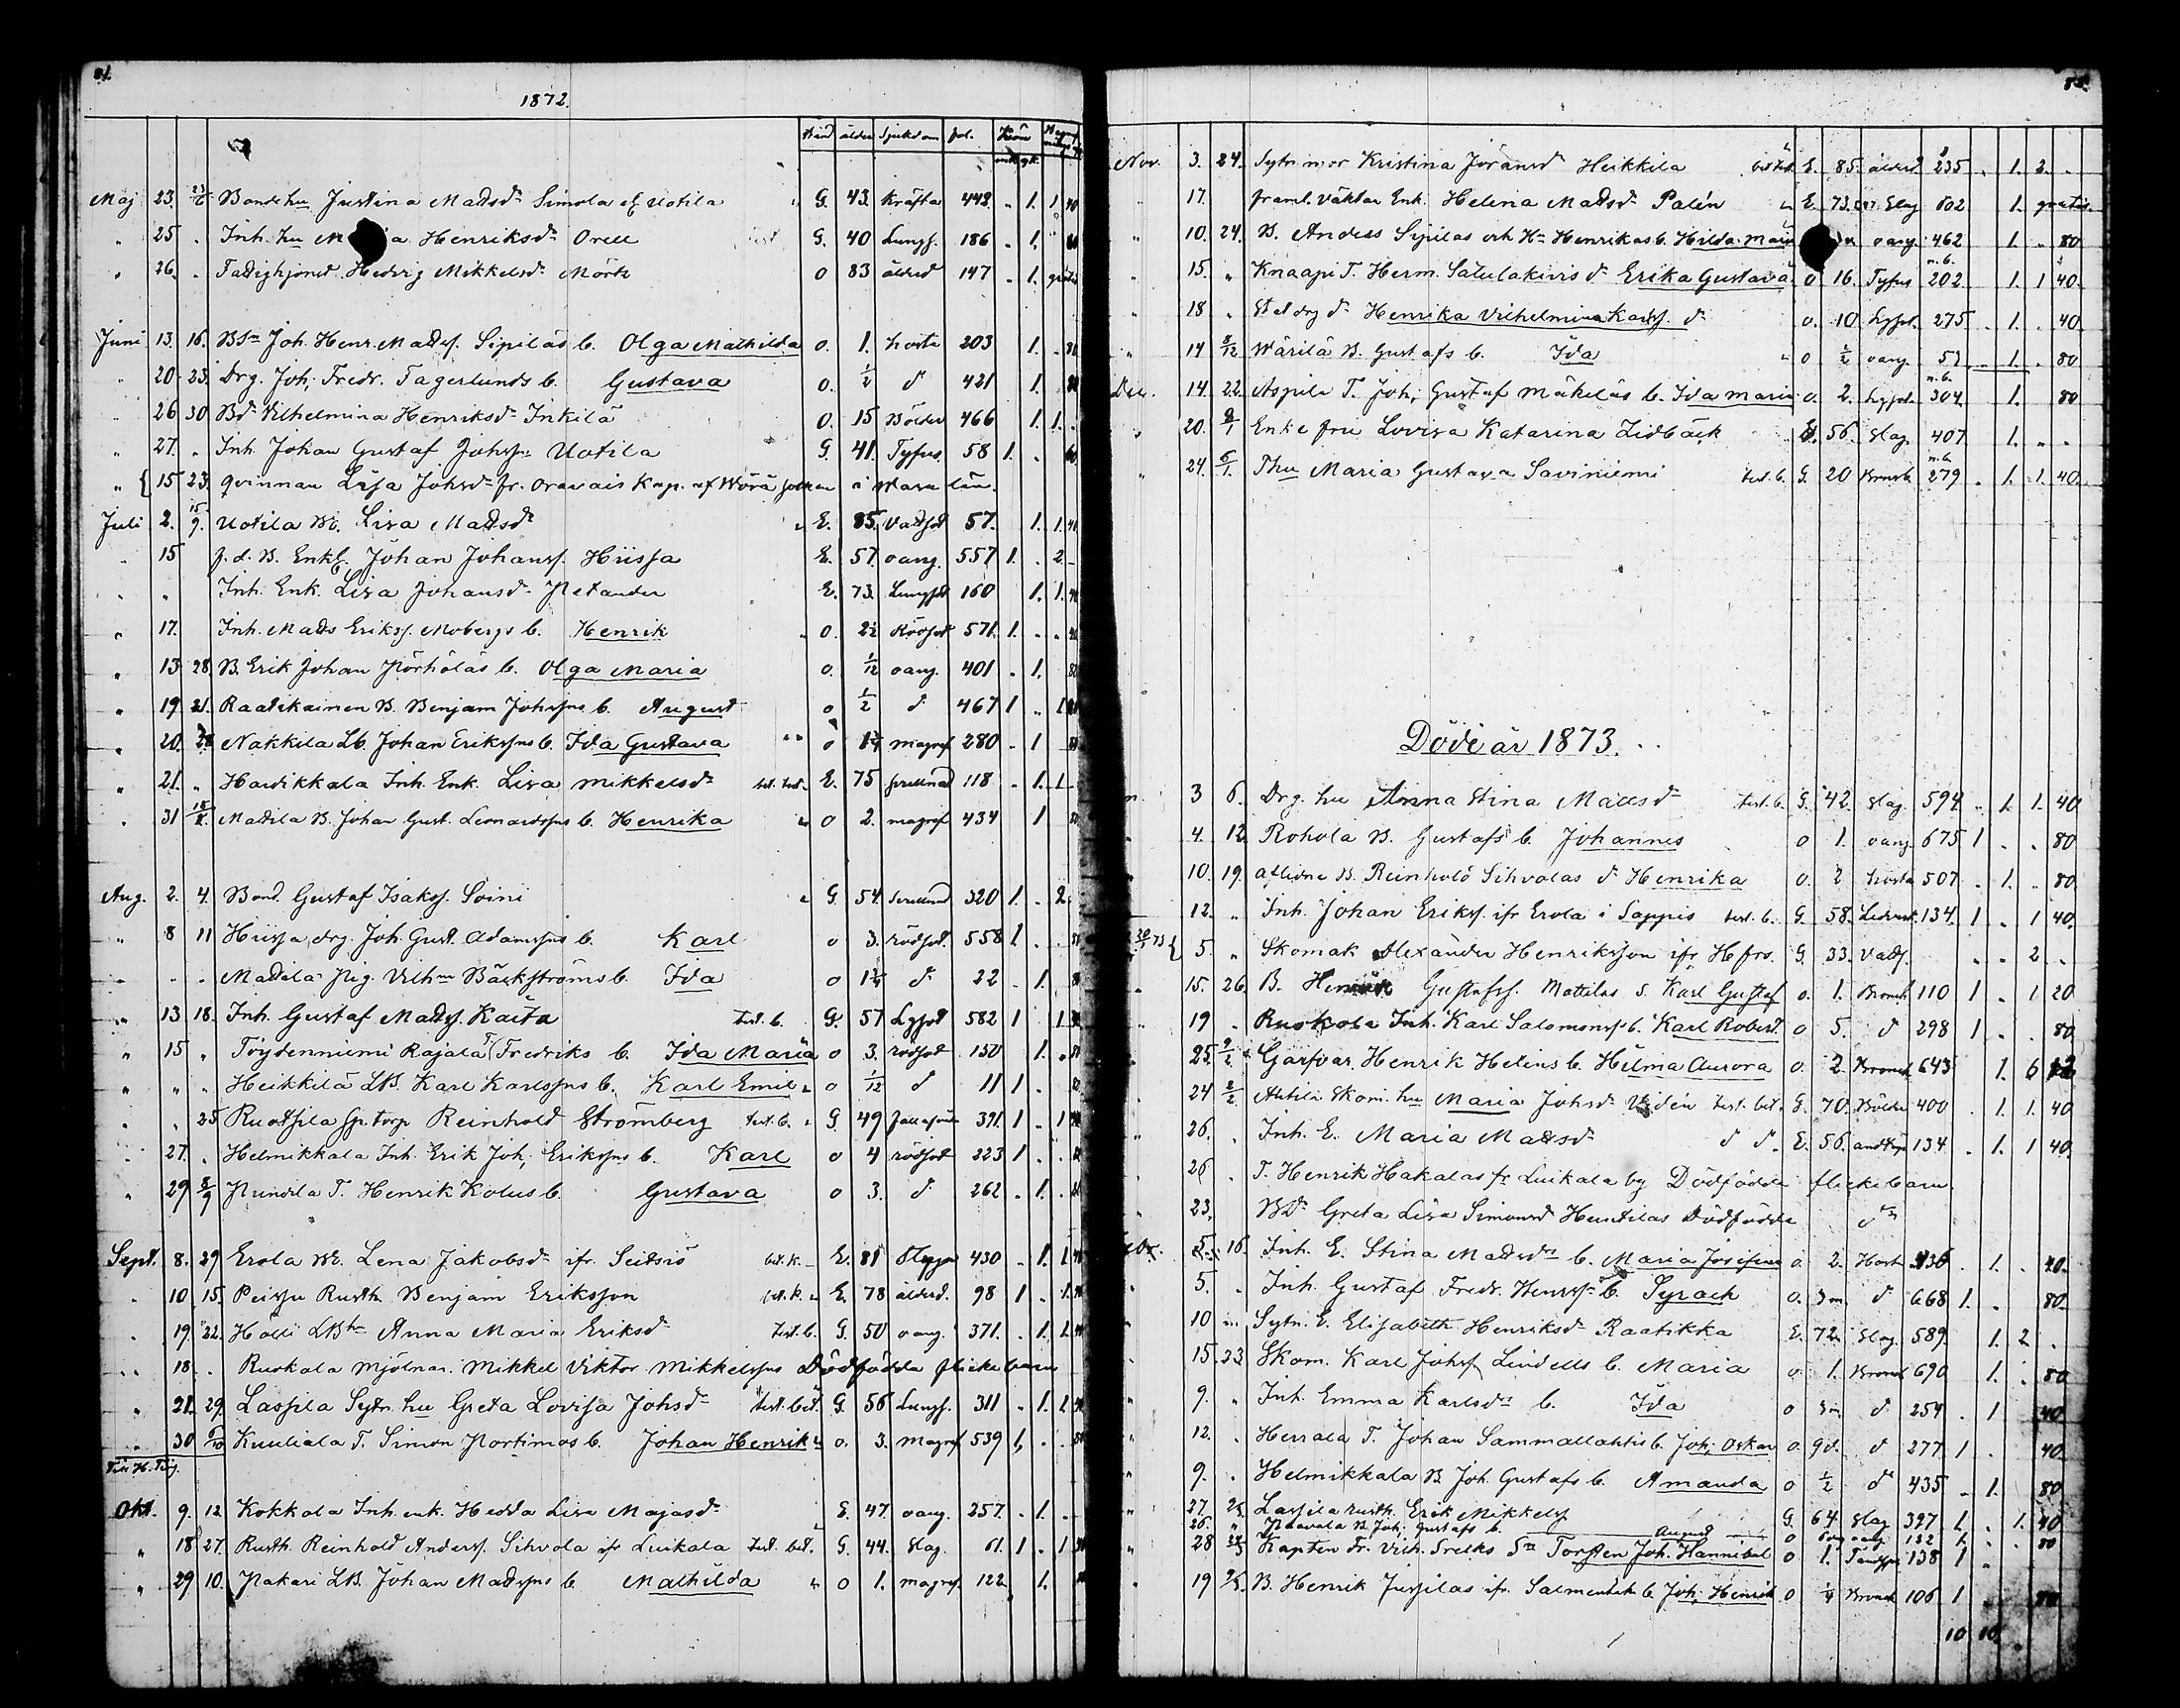 1872.
Stånd ålder Sjukdom fol. Kön
Maj 23. Bonde hu Justina Madsdr Simola ef Uotila G. 43. Kräfta 448. 1. 1 40
" 25 " Inh. hu M a Henriksdr Orell G. 40 Lungs. 186 1.
" 26. " Fattighjond. Hedvig Mikkelsdr Mörk o 83 ålderd 147 1. gratis
Juni 13. 16. Joh. Henr. Madss. Sipiläs b. Olga Mathilda o. 1. hosta 203 1. 80
20 23. Drg. Joh. Fredr. Fagerlunds b. Gustava o. 1/2 d 421 1. 80
26 30 Bdr Vilhelmina Henriksdr Inkilä o. 15 Bölder 466 1. 1.
" 27. " Inh. Johan Gustaf Johssn Uotila G. 41. Tyfus. 58 1.
" { 15 23. qvinnan Lisa Johsdr fr. Oravais Kap. af Wörå socken i Wasa län.
Juli 2. 15/9. Uotila Lisa Madsdr E. 85. Vattsot 57. 1. 1. 40
15 f. d. B. Enkl. Johan Johanss. Hiisja E. 57. oang. 557 1. 2
" " Inh. Enk. Lisa Johansdr Petander E. 73. Lungsot 160 1. 1. 40
" 17. Inh. Mads Erikss. Mobergs b. Henrik o. 2½ Rödsot 571. 1. 40
" 13 28. B. Erik Johan Pörhöläs b. Olga Maria o. 1/12 oang. 401 1. 80
" 19 21. Raatikainen B. Benjam Johssns b. August o 1/2 d 467 1
" 20. 28 Nakkila Lb. Johan Erikssns b. Ida Gustava o magref 280 1
" 21. " Haudikkala Inh. Enk. Lisa Mikkelsdr E. 75 118 1. 1
31 18/8. Madila B. Johan Gust. Leonardssns b. Henrika o 2. magref 434 1
Aug. 2. 4. Bond. Gustaf Isakss. Soini G. 54. 320 1. 2.
" 8 11 Hiisja drg. Joh. Gust. Adamssns b. Karl o 3. rödsot. 558 1
" " " Madila Pig. Vilhna Bäckströms b. Ida o 1¼ d 22 1.
" 13 18. Inh. Gustaf Madss. Kaita test. b. G. 57 Lgsot 582 1 1
" 15 " Töydenniemi Rajala T Fredriks b. Ida Maria o 3. rödsot 150 1.
" " " Heikkilä LB. Karl Karlssns b. Karl Emil o 1/12 d 11 1
" " 25 Ruotsila Sp. torp Reinhold Strömberg test. b. G. 49 391. 1 1
27. " Helmikkala Inh. Erik Joh. Erikssns b. Karl o 4 rödsot 223 1
" 29 8/9 Pundila T. Henrik Kolus b. Gustava o 3. d 262 1.
Sept. 8. 29 Erola Lena Jakobsdr ifr. Seitsiö bet. k. E. 81 430 1. 1
10 15. Peissu Rusth. Benjam Eriksson bet. k. E. 78 ålderd. 98 1 1.
" 19. 22. Hölli LBhu Anna Maria Eriksdr test. b. G. 50 oang. 371. 1. 1.
" 18. " Ruskala Mjölnar. Mikkel Viktor Mikkelssns Dödfödda flickebarn
" 21. 29. Lassila Sytn. hu Greta Lovisa Johsdr test. bet. G. 56 Lungs. 311 1. 1.
" 30 6/10 Kuuliala T. Simon Portimos b. Johan Henrik o. 3. Magref 539 1.
Okt. 9. 12. Kokkala Inh. enk. Hedda Lisa Majasdr E. 47. oang. 257. 1.
" 18 27. Rusth. Reinhold Anderss. Sihvola ifr Luikala test. bet. G. 44. Slag. 61. 1 1
" 29 10. Pakari LB. Johan Madssns b. Mathilda o 1. magref. 122 1.
85.
Nov. 3. 24. Sytn. mor Kristina Jöransdr Heikkilä E. 85. ålderd. 235 1. 2.
" 17. framl. Väktar Enk. Helena Madsdr Palén E. 73. Slag 602 1. gratis.
" 10. 24. B. Anders Sipiläs och Hu Henrikas b. Hilda Maria oang. 462 1. 80
" 15. " Knaapi T. Herm. Satulakivis dr Erika Gustava o 16. Tyfus 202. 1. 1 40.
" 18 " Stat drg dr Henrika Vilhelmina Karlss. dr o. 10. Lgsot. 275 1. 40
" 14 8/12 Wärilä B. Gustafs b. Ida o 1/2 oang. 51 1. 80
Dec. 14. 22. Aspila T. Joh. Gustaf Mäkeläs b. Ida Maria o. 2. Lgsot. 304. 1. 80
" 20. 8/1 Enkefru Lovisa Katarina Lidbäck E. 56. Slag. 407 1.
" 24. 6/1. Thu Maria Gustava Saviniemi test. b. G. 20 279 1. 1. 40.
Döde år 1873.
3 6. Drg. hu Anna Stina Madsdr test. b. G. 42. Slag. 594. 1. 1. 40
4. 12. Rohola B. Gustafs b. Johannes o 1. oang. 675 1 80
10. 19. aflidne B. Reinhold Sihvolas dr Henrika o. 2 hosta 507 1. 80
12. " Inh. Johan Erikss. ifr Erola i Sappis test. b. G. 58. 134. 1 1 40.
5. " Skomak Alexander Henriksson ifr Hfrs. G. 33. Vats. 2
15. 26 B. Henrik Gustafss. Mattilas s. Karl Gustaf o. 1. Bronch. 110 1 1 20
19 " Ruokola Inh. Karl Salomonss b. Karl Robert. o 5. d 298 1 80
25. 2/2 Garfvar. Henrik Helins b. Hilma Aurora o. 2. Bronch 643 1. 6
24 2/2. Antila Skom. hu Maria Johsdr Widén test. bet. G. 70. Bölder 400 1. 1. 40
" 26. " Inh. E. Maria Madsdr d d. E. 56. 134 1. 1 40.
26 " T. Henrik Hakalas fr Luikala by Dödfödda flickebarn.
23. Bdr Greta Lisa Simonsdr Huntilas Dödfödda d
5. 16. Inh. E. Stina Madsdrs b. Maria Josefina o. 2. Host. 436 1. 40.
5. " Inh. Gustaf Fredr. Henrss. b. Syrach o. 3m. d 668 1. 80.
10 " Sytn. E. Elisabeth Henriksdr Raatikka E. 72. Slag. 589. 1. 2
15. 23. Skom. Karl Johss Lindells b. Maria o 1. Bronch 690 1. 80
9. " Inh. Emma Karlsdrs b. Ida o 3m d 254 1 40
12. " Herrala T. Johan Sammallahtis b. Joh. Oskar o. 9d. d 277. 1 40.
9. " Helmikkala B. Joh. Gustafs b. Amanda o 1/2 d 435 1. 80
27. Lassila rusth. Erik Mikkelss G. 64. Slag. 327 1. 1. 40
26. " Paavola B. Joh. Gustafs b. August o 132 1. 80
28 Kapten Fr. Vilh. Torsten Joh. Hannibal o 1. 138 1
19 B. Henrik Jussilas ifr. Salmentaka b. Joh. Henrik o ¼ Bronch 106 1 80
10 10.